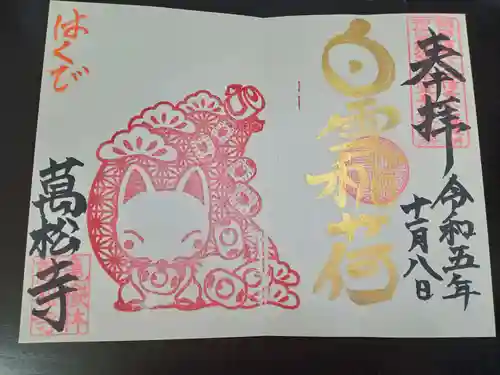 奉拝
令和五年
十一月八日
白雪稲荷
はくび
萬松寺